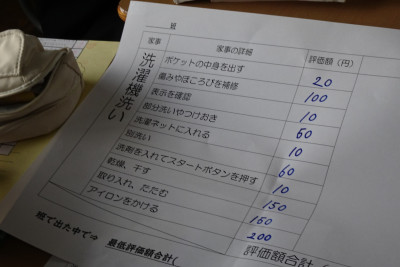 班
家事 家事の詳細 評価額（円）
洗濯機洗い
ポケットの中身を出す 20
傷みやほころびを補修 100
表示を確認 10
部分洗いやつけおき 60
洗濯ネットに入れる 10
洗い 60
洗剤を入れてスタートボタンを押す 10
乾燥、干す 150
取り入れ、たたむ
アイロンをかける 200
評価額合計
班で出た中での 最低評価額合計(